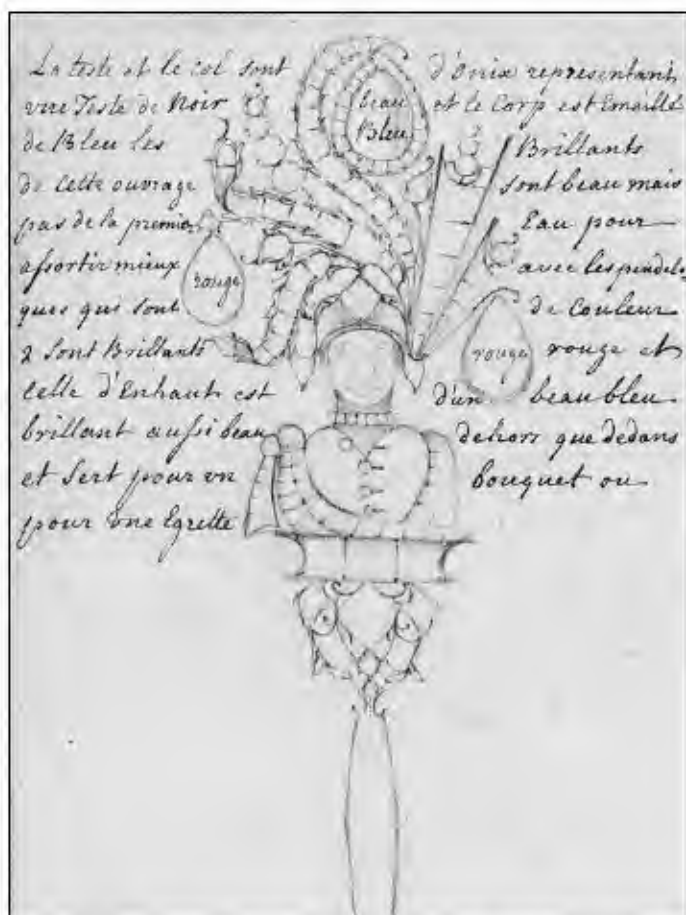 La teste et le col sont d'Onix representant
une Teste de Noir et le Corp est Emaillé
de Bleu les Brillants
de Cette ouvrage sont beau mais
pas de la premier Eau pour
assortir mieux avec les pendelo
ques qui sont de Couleur
2 sont Brillants rouge et
Celle d'Enhaut est d'un beau bleu
brillant aussi beau dehors que dedans
et sert pour un bouquet ou
pour une Egrette
beau
Bleu
rouge
rouge